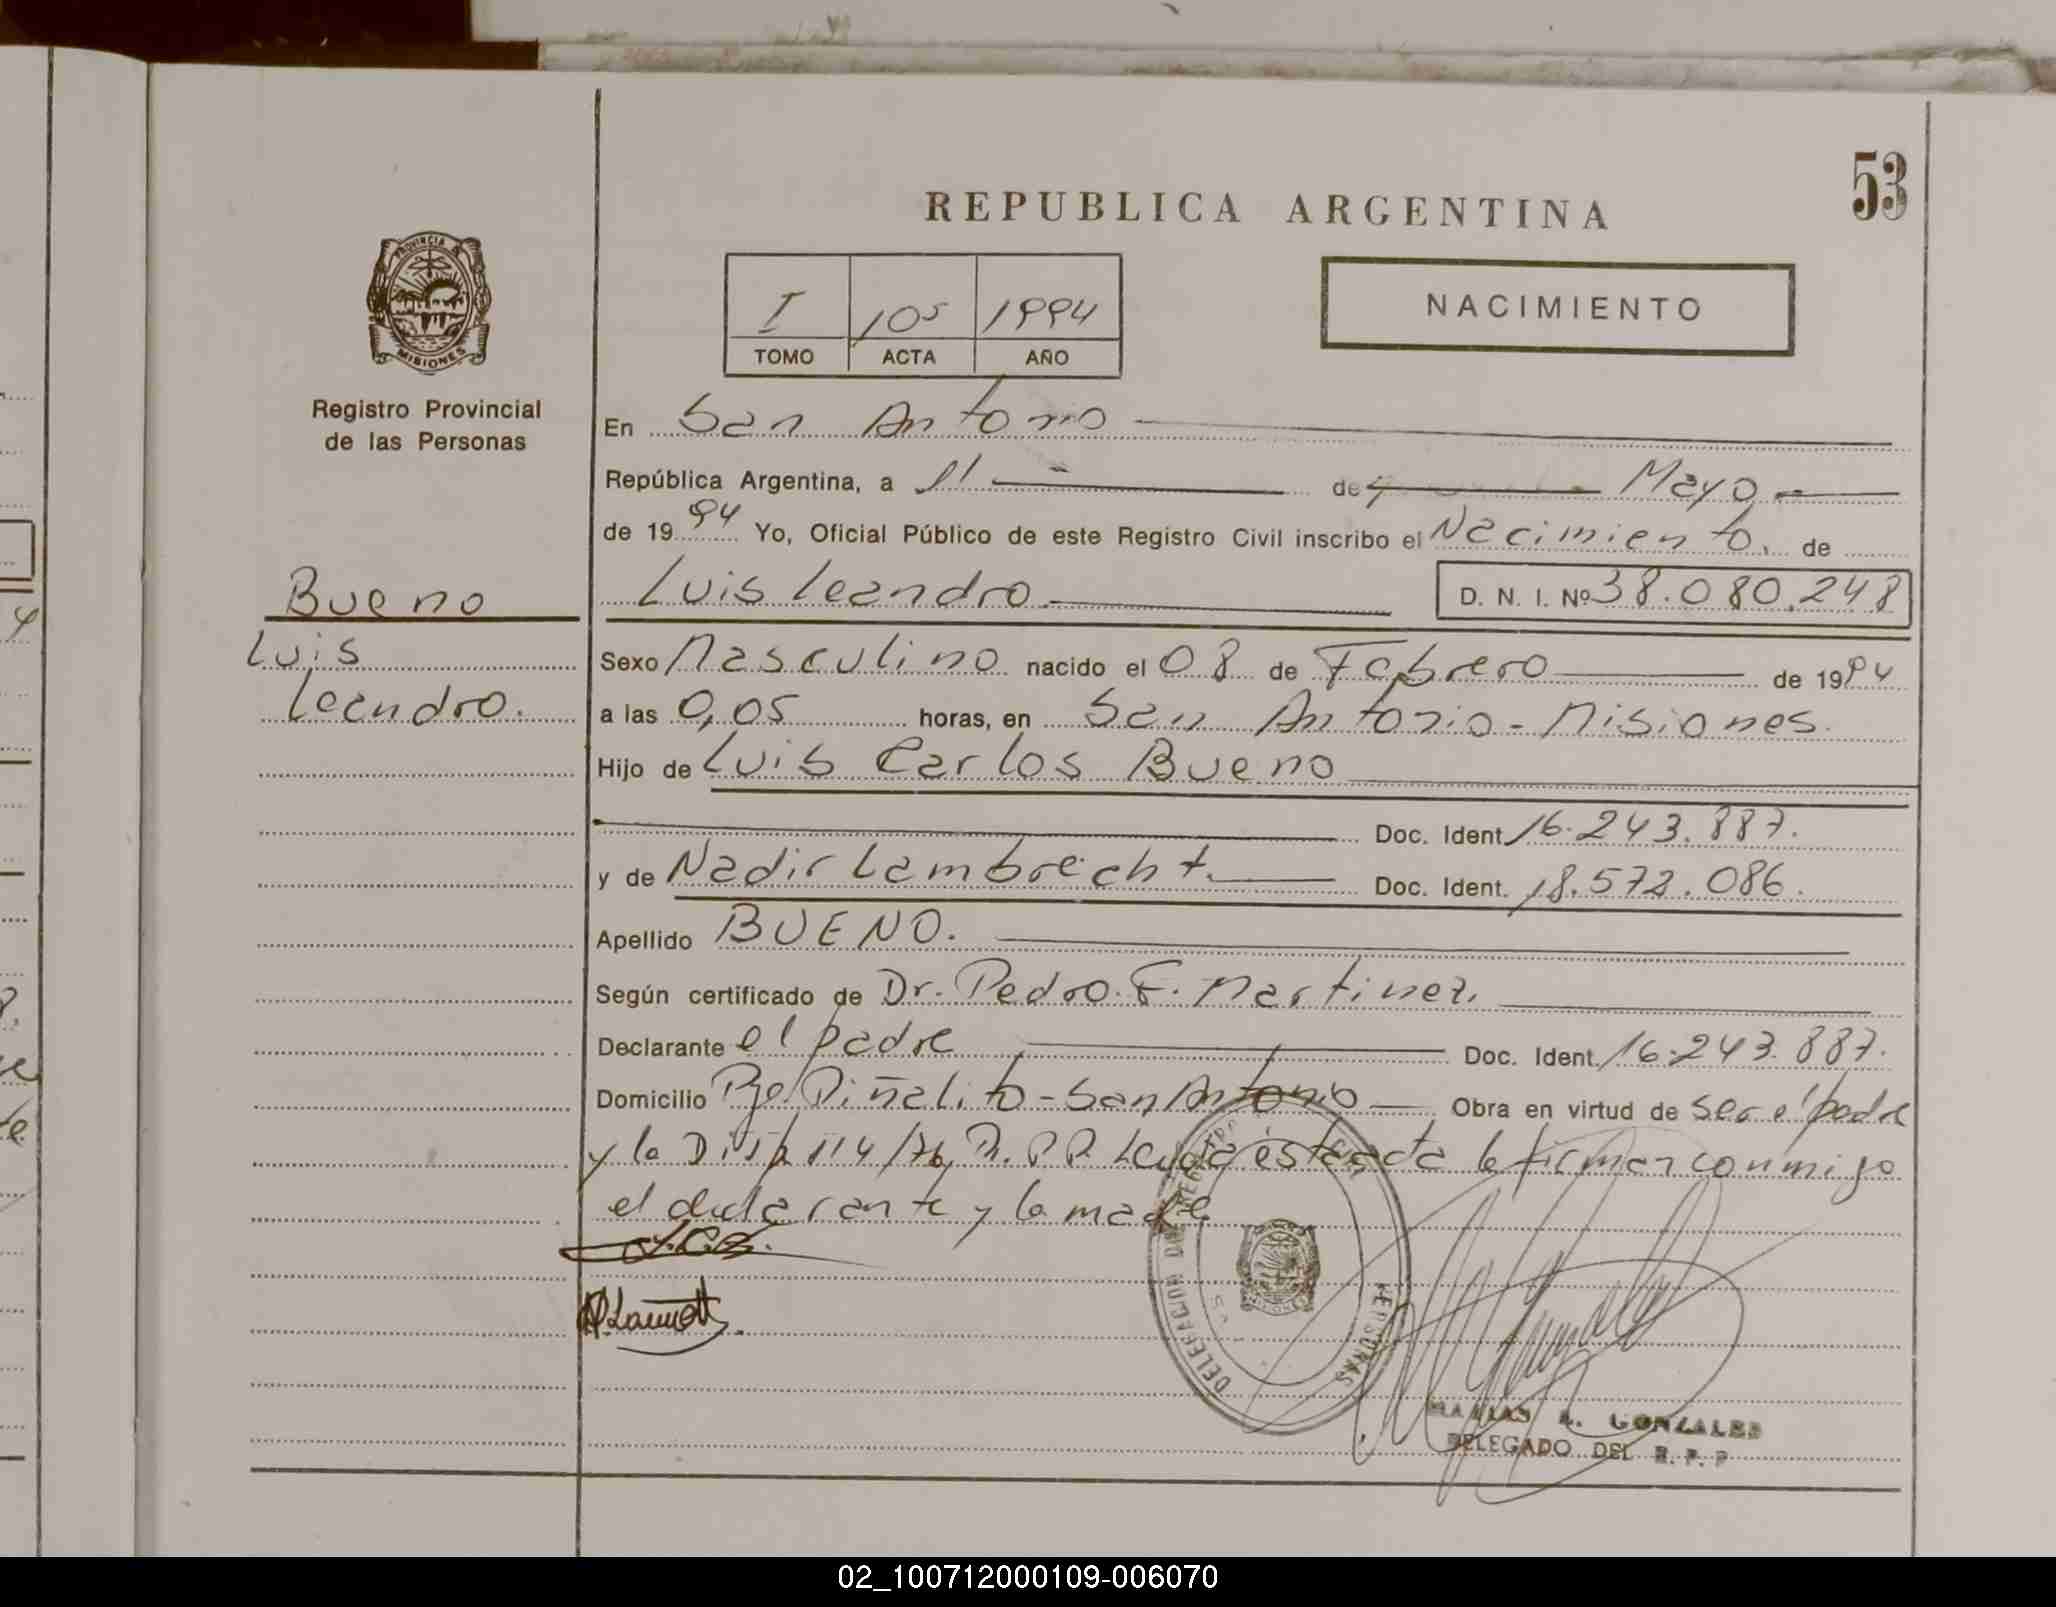 53
REPUBLICA ARGENTINA
PROVINCIA DE
MISIONES
I 105 1994
TOMO ACTA AÑO
NACIMIENTO
Registro Provincial
de las Personas
En San Antonio
República Argentina, a 11 de Mayo
de 1994 Yo, Oficial Público de este Registro Civil inscribo el Nacimiento. de
Bueno
Luis Leandro. D. N. I. Nº 38.080.248
Luis
Leandro.
Sexo Masculino nacido el 08 de Febrero de 1994
a las 0,05 horas, en San Antonio - Misiones.
Hijo de Luis Carlos Bueno
Doc. Ident. 16.243.887.
y de Nadir Lambrecht. Doc. Ident. 18.572.086.
Apellido BUENO.
Según certificado de Dr. Pedro. F. Martinez.
Declarante el padre Doc. Ident. 16.243.887.
Domicilio Pje. Piñalito - San Antonio Obra en virtud de ser el padre
y la Disp. 114/76, R.P.P. Leyda esta acta la firman conmigo
el declarante y la madre
L.C.B.
DELEGACION DEL REGISTRO PERSONAS
MATIAS R. GONZALES
DELEGADO DEL R. P. P
02_100712000109-006070